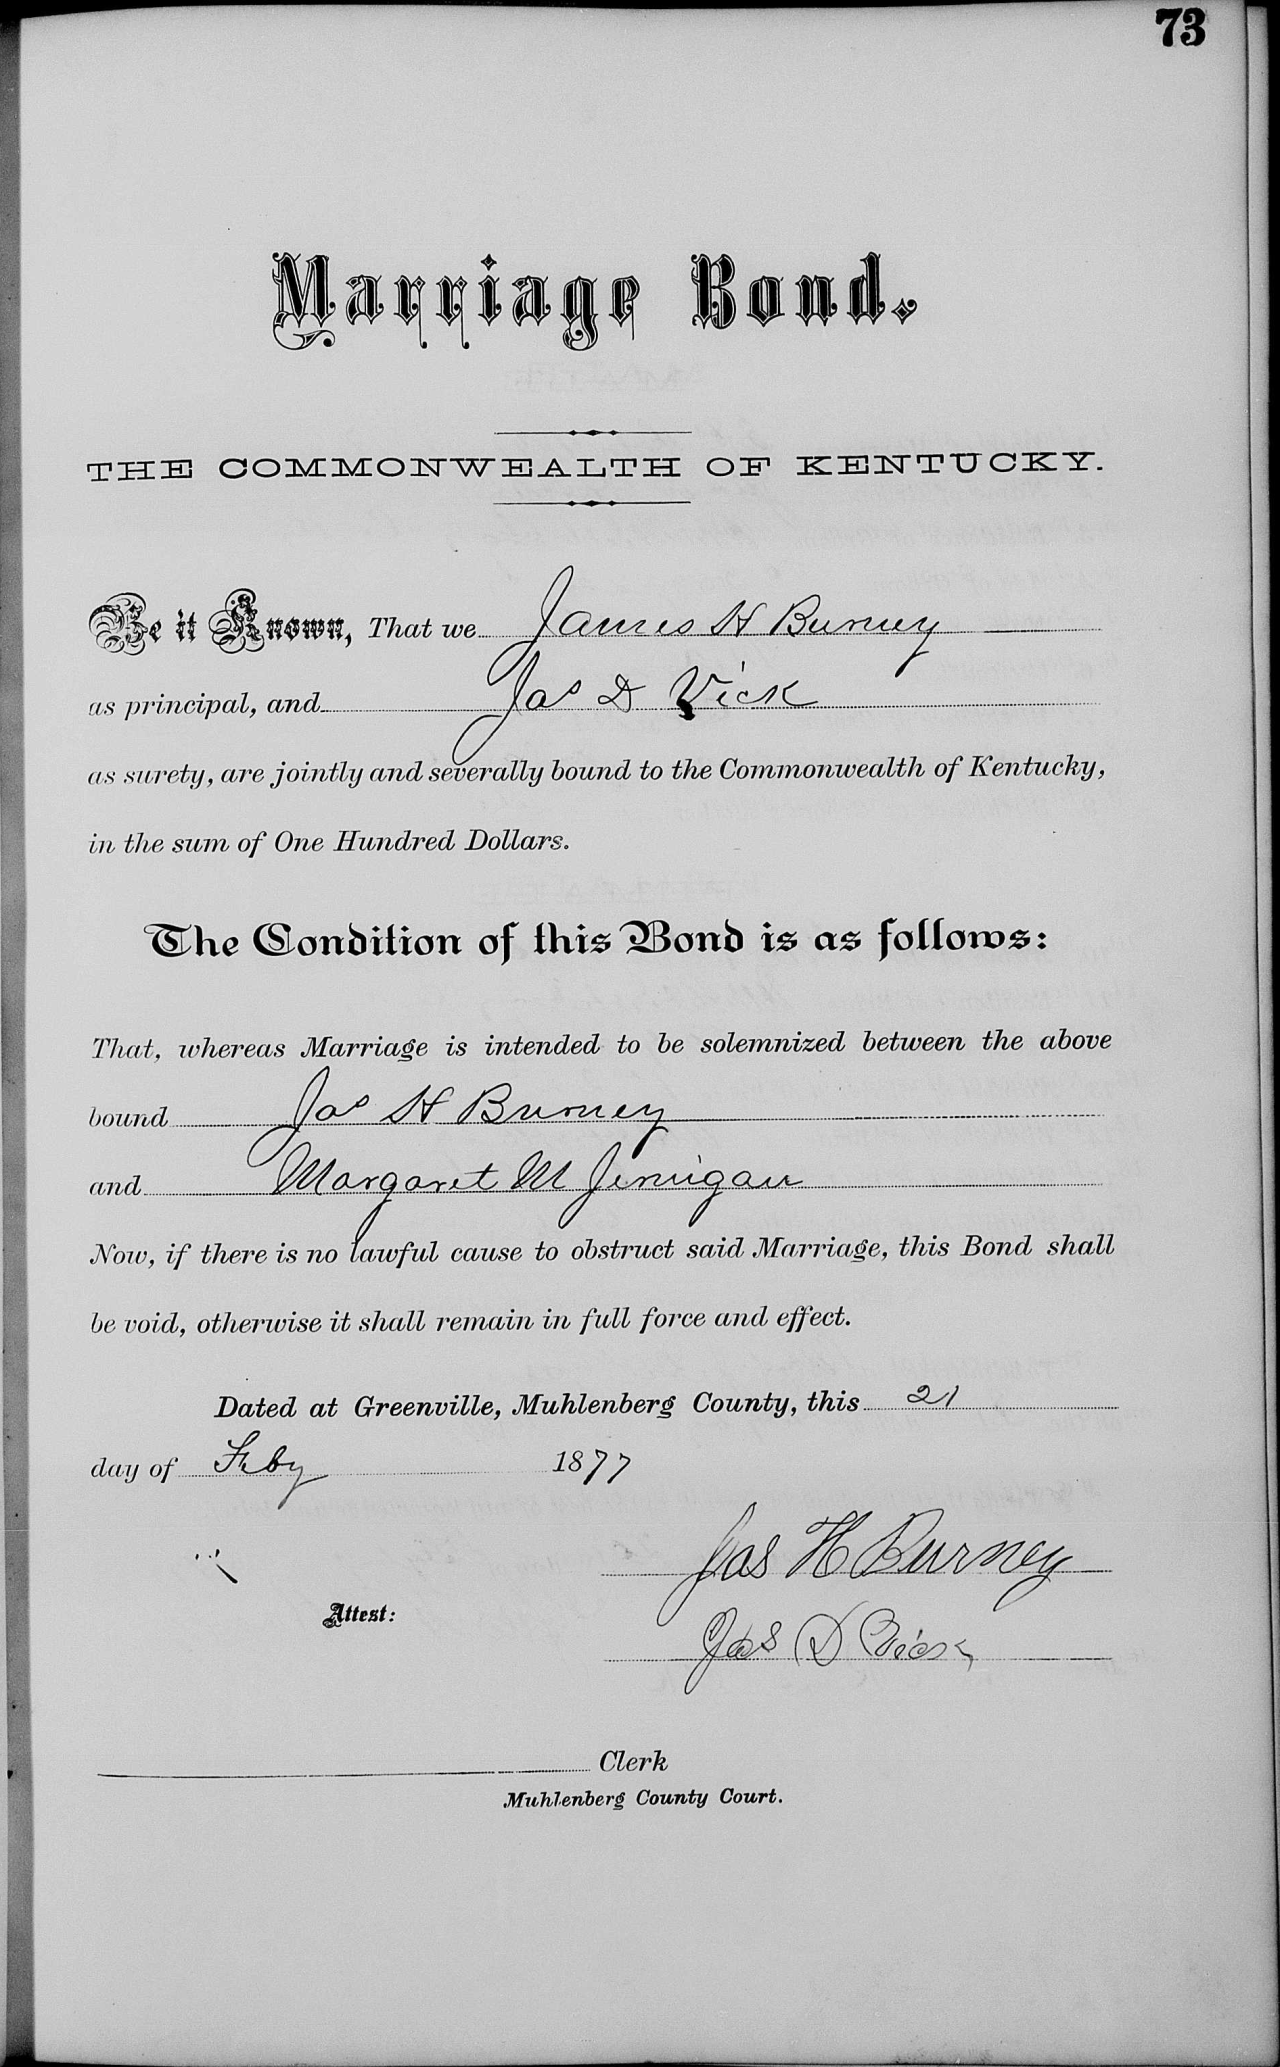 73
Marriage Bond.
THE COMMONWEALTH OF KENTUCKY.
Be it Known, That we James H Burney
as principal, and Jas D Vick
as surety, are jointly and severally bound to the Commonwealth of Kentucky,
in the sum of One Hundred Dollars.
The Condition of this Bond is as follows:
That, whereas Marriage is intended to be solemnized between the above
bound Jas H Burney
and Margaret M Jernigan
Now, if there is no lawful cause to obstruct said Marriage, this Bond shall
be void, otherwise it shall remain in full force and effect.
Dated at Greenville, Muhlenberg County, this 21
day of Feby 1877
Jas H Burney
Attest:
Jas D Vick
Clerk
Muhlenberg County Court.